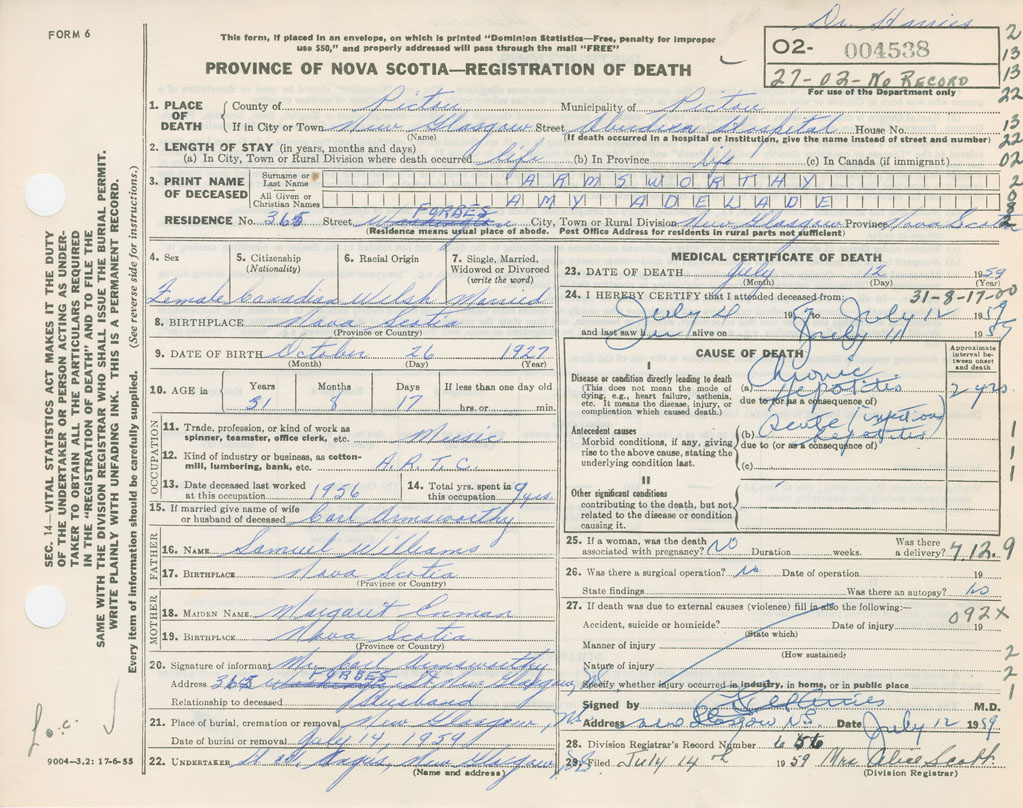 Dr. Harries
FORM 6
This form, if placed in an envelope, on which is printed "Dominion Statistics—Free, penalty for improper
use $50," and properly addressed will pass through the mail "FREE"
02- 004538
27-02-No Record
For use of the Department only
PROVINCE OF NOVA SCOTIA—REGISTRATION OF DEATH
2
13
13
22
13
22
02
1. PLACE OF DEATH { County of Pictou Municipality of Pictou
If in City or Town New Glasgow Street Aberdeen Hospital House No.
(Name) (If death occurred in a hospital or institution, give the name instead of street and number)
2. LENGTH OF STAY (in years, months and days)
(a) In City, Town or Rural Division where death occurred life (b) In Province life (c) In Canada (if immigrant)
3. PRINT NAME OF DECEASED { Surname or Last Name ARMSWORTHY
All Given or Christian Names AMY ADELADE
RESIDENCE No. 365 Street Washington FORBES City, Town or Rural Division New Glasgow Province Nova Scotia
(Residence means usual place of abode. Post Office Address for residents in rural parts not sufficient)
4. Sex 5. Citizenship (Nationality) 6. Racial Origin 7. Single, Married, Widowed or Divorced (write the word)
Female Canadian Welsh Married
8. BIRTHPLACE Nova Scotia
(Province or Country)
9. DATE OF BIRTH October 26 1927
(Month) (Day) (Year)
10. AGE in Years Months Days If less than one day old
31 8 17 hrs. or min.
OCCUPATION
11. Trade, profession, or kind of work as
spinner, teamster, office clerk, etc. Music
12. Kind of industry or business, as cotton-
mill, lumbering, bank, etc. A.R.T.C.
13. Date deceased last worked
at this occupation 1956
14. Total yrs. spent in
this occupation 9 yrs.
15. If married give name of wife
or husband of deceased Carl Armsworthy
FATHER
16. NAME Samuel Williams
17. BIRTHPLACE Nova Scotia
(Province or Country)
MOTHER
18. MAIDEN NAME Margaret Inman
19. BIRTHPLACE Nova Scotia
(Province or Country)
20. Signature of informant Mr. Carl Armsworthy
Address 365 Washington FORBES St. New Glasgow, N.S.
Relationship to deceased Husband
21. Place of burial, cremation or removal New Glasgow, N.S.
Date of burial or removal July 14, 1959
22. UNDERTAKER Angus, New Glasgow, N.S.
(Name and address)
MEDICAL CERTIFICATE OF DEATH
23. DATE OF DEATH July 12 1959
(Month) (Day) (Year)
31-8-17-00
24. I HEREBY CERTIFY that I attended deceased from:
July 4 1957 to July 12 1959
and last saw her alive on July 11 1959
CAUSE OF DEATH
Approximate interval between onset and death
I
Disease or condition directly leading to death
(This does not mean the mode of
dying, e.g., heart failure, asthenia,
etc. It means the disease, injury, or
complication which caused death.)
(a) Chronic Hepatitis 2 yrs
due to (or as a consequence of)
Antecedent causes
Morbid conditions, if any, giving
rise to the above cause, stating the
underlying condition last.
(b) Acute (infectious) hepatitis
due to (or as a consequence of)
(c)
1
1
1
II
Other significant conditions
contributing to the death, but not
related to the disease or condition
causing it.
25. If a woman, was the death
associated with pregnancy? No Duration weeks. Was there
a delivery? 7.12.9
26. Was there a surgical operation? No Date of operation 19
State findings Was there an autopsy? No
27. If death was due to external causes (violence) fill in also the following:—
092X
Accident, suicide or homicide? Date of injury 19
(State which)
Manner of injury
(How sustained)
Nature of injury
Specify whether injury occurred in industry, in home, or in public place
2
2
1
Signed by M.D.
Address New Glasgow NS Date July 12 1959
28. Division Registrar's Record Number 656
29. Filed July 14th 1959 Mrs Alice Scott
(Division Registrar)
SEC. 14—VITAL STATISTICS ACT MAKES IT THE DUTY
OF THE UNDERTAKER OR PERSON ACTING AS UNDER-
TAKER TO OBTAIN ALL THE PARTICULARS REQUIRED
IN THE "REGISTRATION OF DEATH" AND TO FILE THE
SAME WITH THE DIVISION REGISTRAR WHO SHALL ISSUE THE BURIAL PERMIT.
WRITE PLAINLY WITH UNFADING INK. THIS IS A PERMANENT RECORD.
Every item of information should be carefully supplied. (See reverse side for instructions.)
9004—3.2: 17-6-55